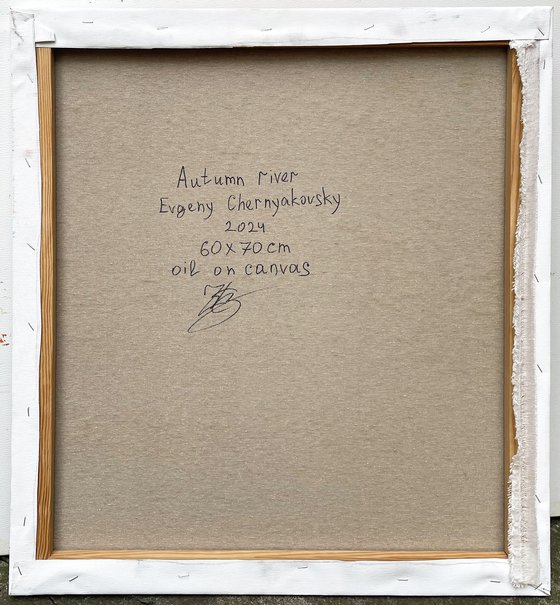 Autumn river
Evgeny Chernyakovsky
2024
60x70cm
oil on canvas